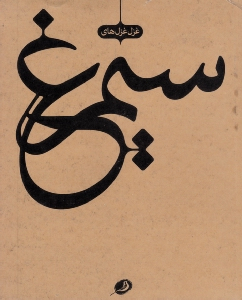 غزل غزل های
سیمرغ